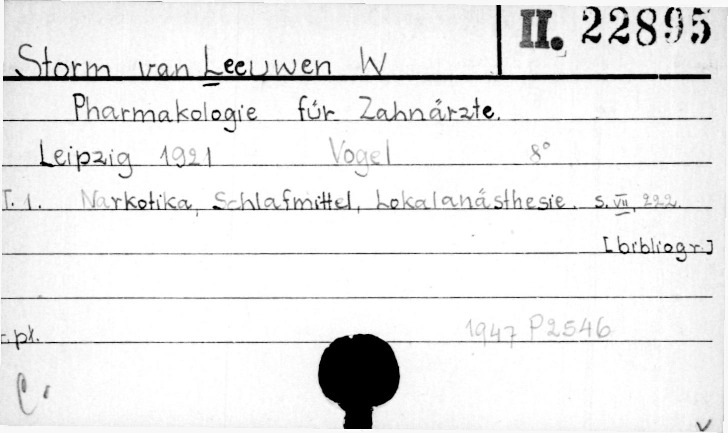 II. 22895
Storm van Leeuwen W
Pharmakologie für Zahnärzte.
Leipzig 1921 Vogel 8°
T. 1. Narkotika, Schlafmittel, Lokalanästhesie. s. VII, 222.
[bibliogr.]
1947 P2546
cpł.
C.